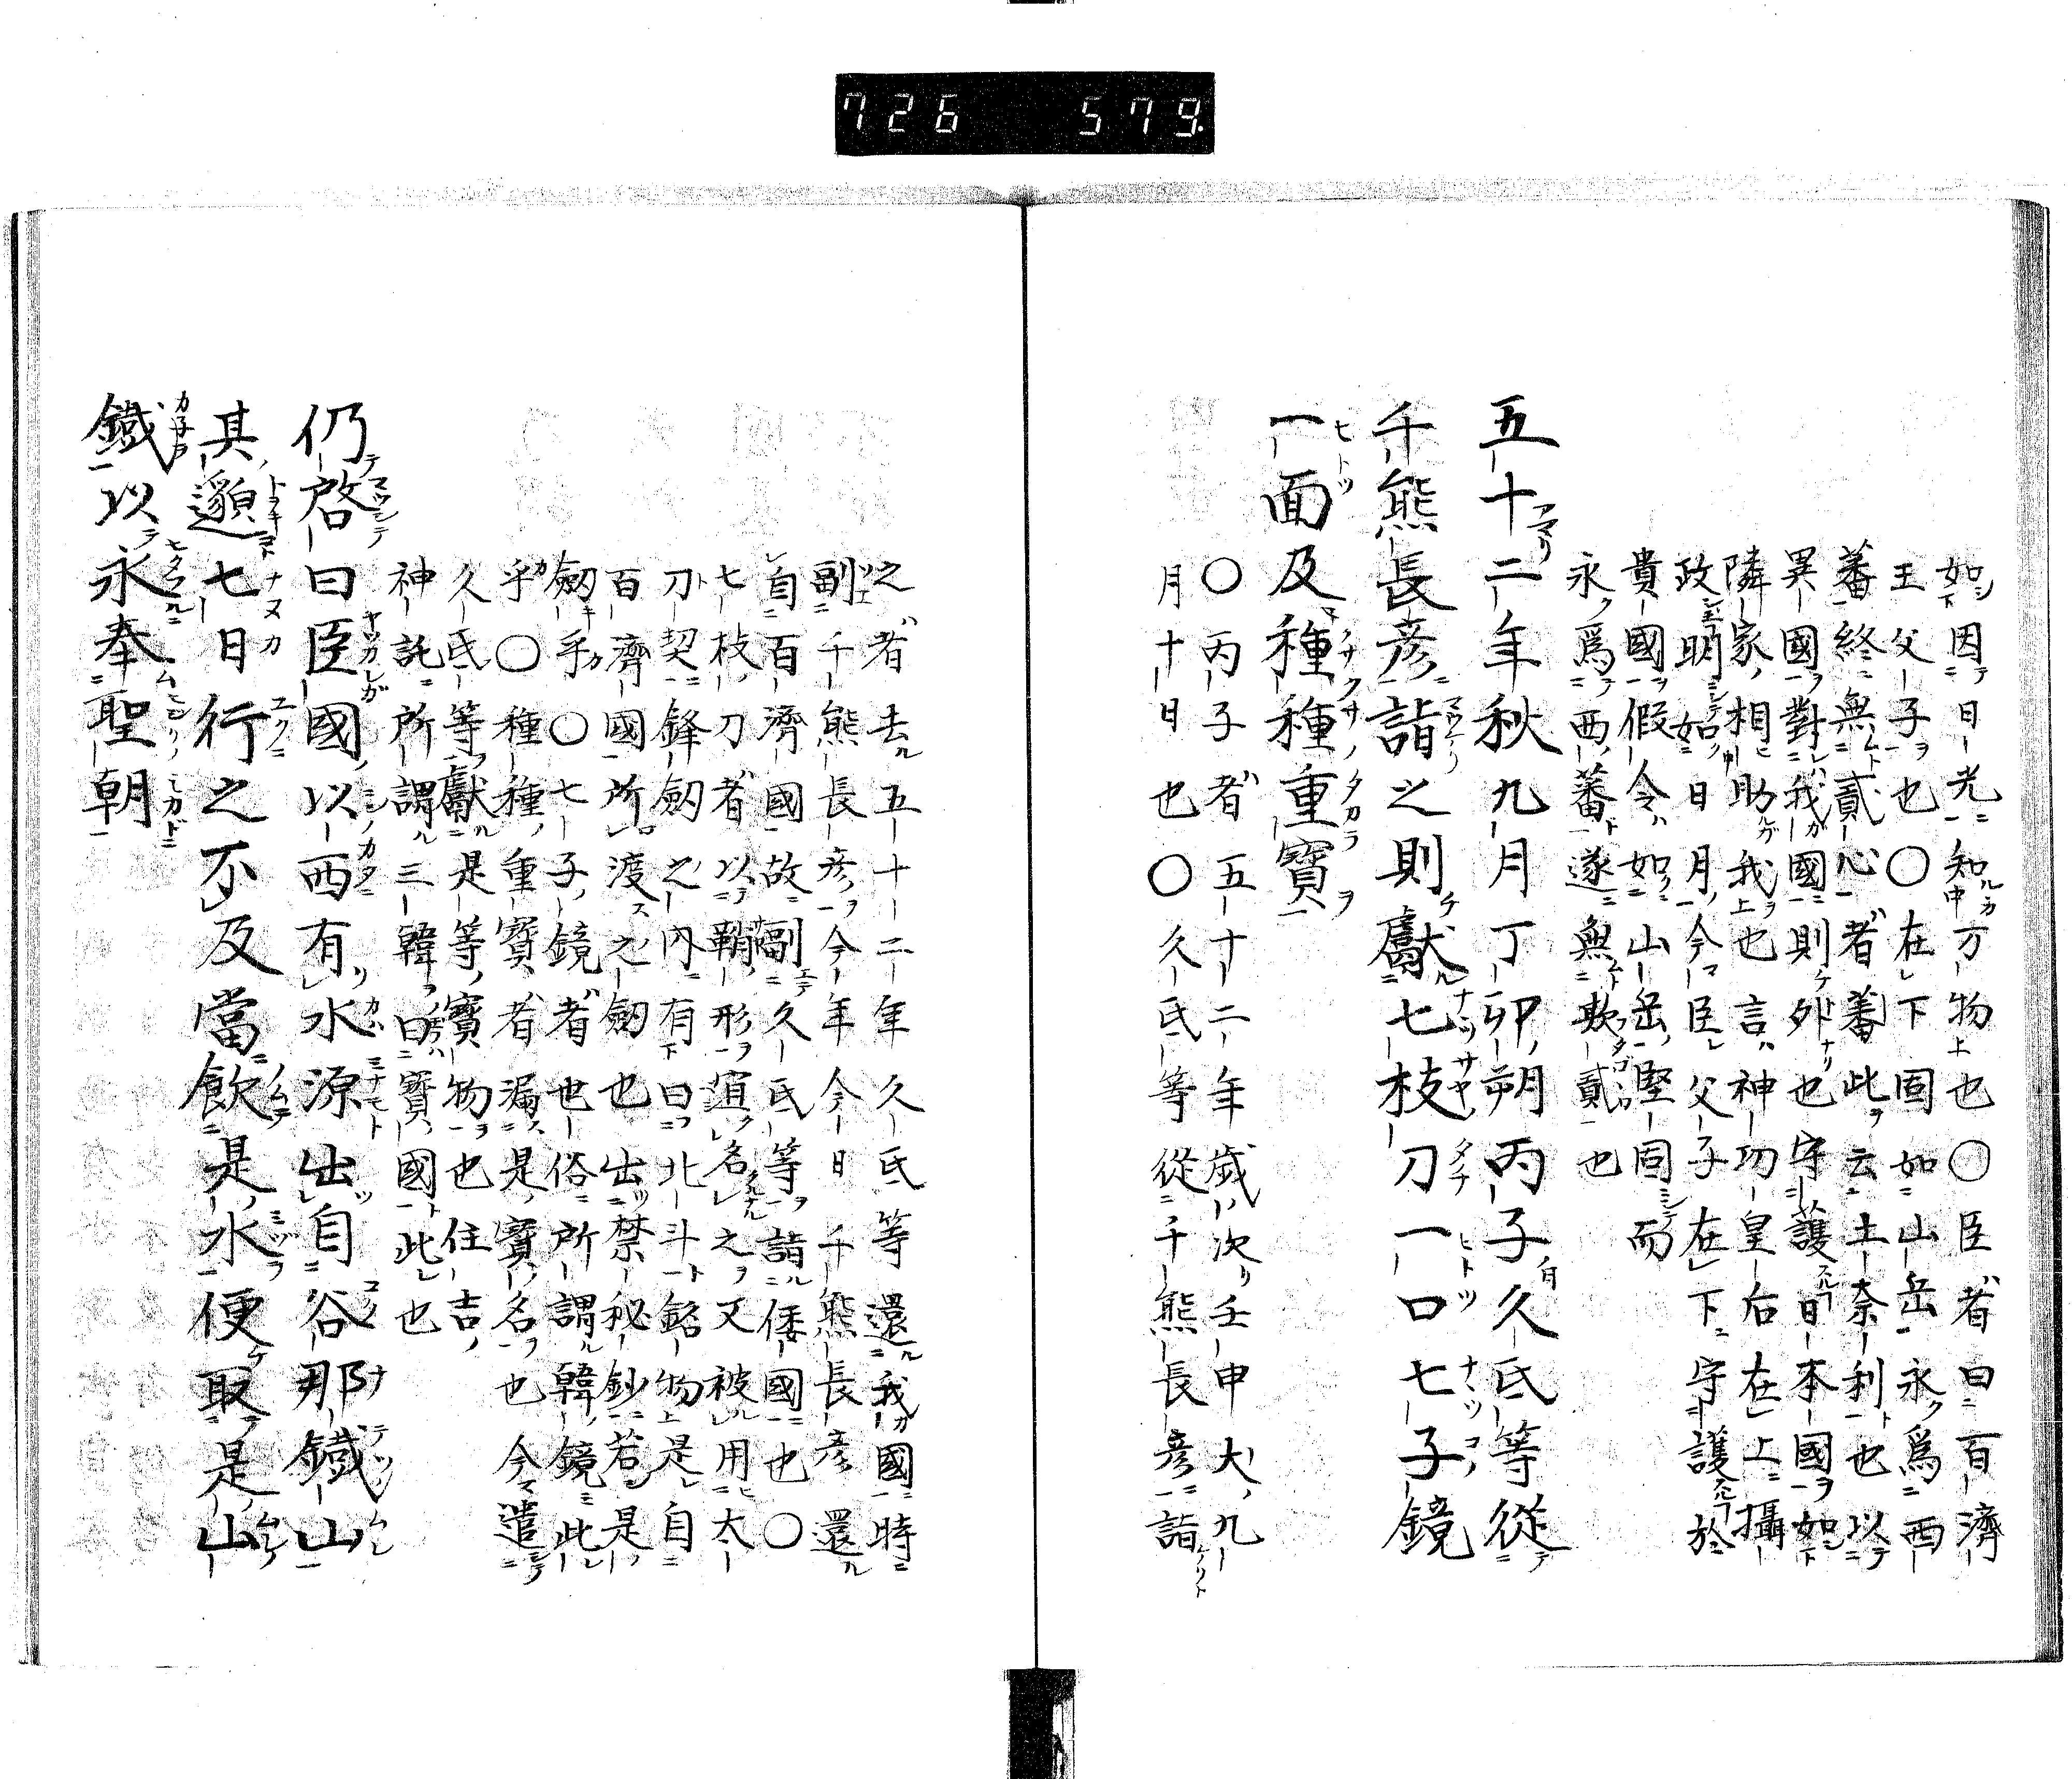 726 579.
如因日光知万物也〇臣者曰百濟
王父子也〇在下固如山岳永爲西
蕃終無貳心者蕃此云土奈利也以
異國對我國則外也守護日本國如
隣家相助我也言神功皇后在上攝
政明如日月今臣父子在下守護於
貴國假令如山岳堅固而
永爲西蕃遂無欺貳也
五十二年秋九月丁卯朔丙子久氐等從
千熊長彦詣之則獻七枝刀一口七子鏡
一面及種種重寶
〇丙子者五十二年歳次壬申大九
月十日也〇久氐等從千熊長彦詣
之者去五十二年久氐等還我國時
副千熊長彦今年今日千熊長彦還
自百濟國故副久氐等詣倭國也〇
七枝刀者以鞘形宜名之又被用太
刀契鋒劔之内有曰北斗銘物是自
百濟國所渡之劔也出禁秘鈔若是
劔乎〇七子鏡者也俗所謂韓鏡此
乎〇種種重寶者漏是寶名也今遣
久氐等獻是等寶物也住吉
神託所謂三韓曰寶國此也
仍啓曰臣國以西有水源出自谷那鐵山
其邈七日行之不及當飲是水便取是山
鐵以永奉聖朝